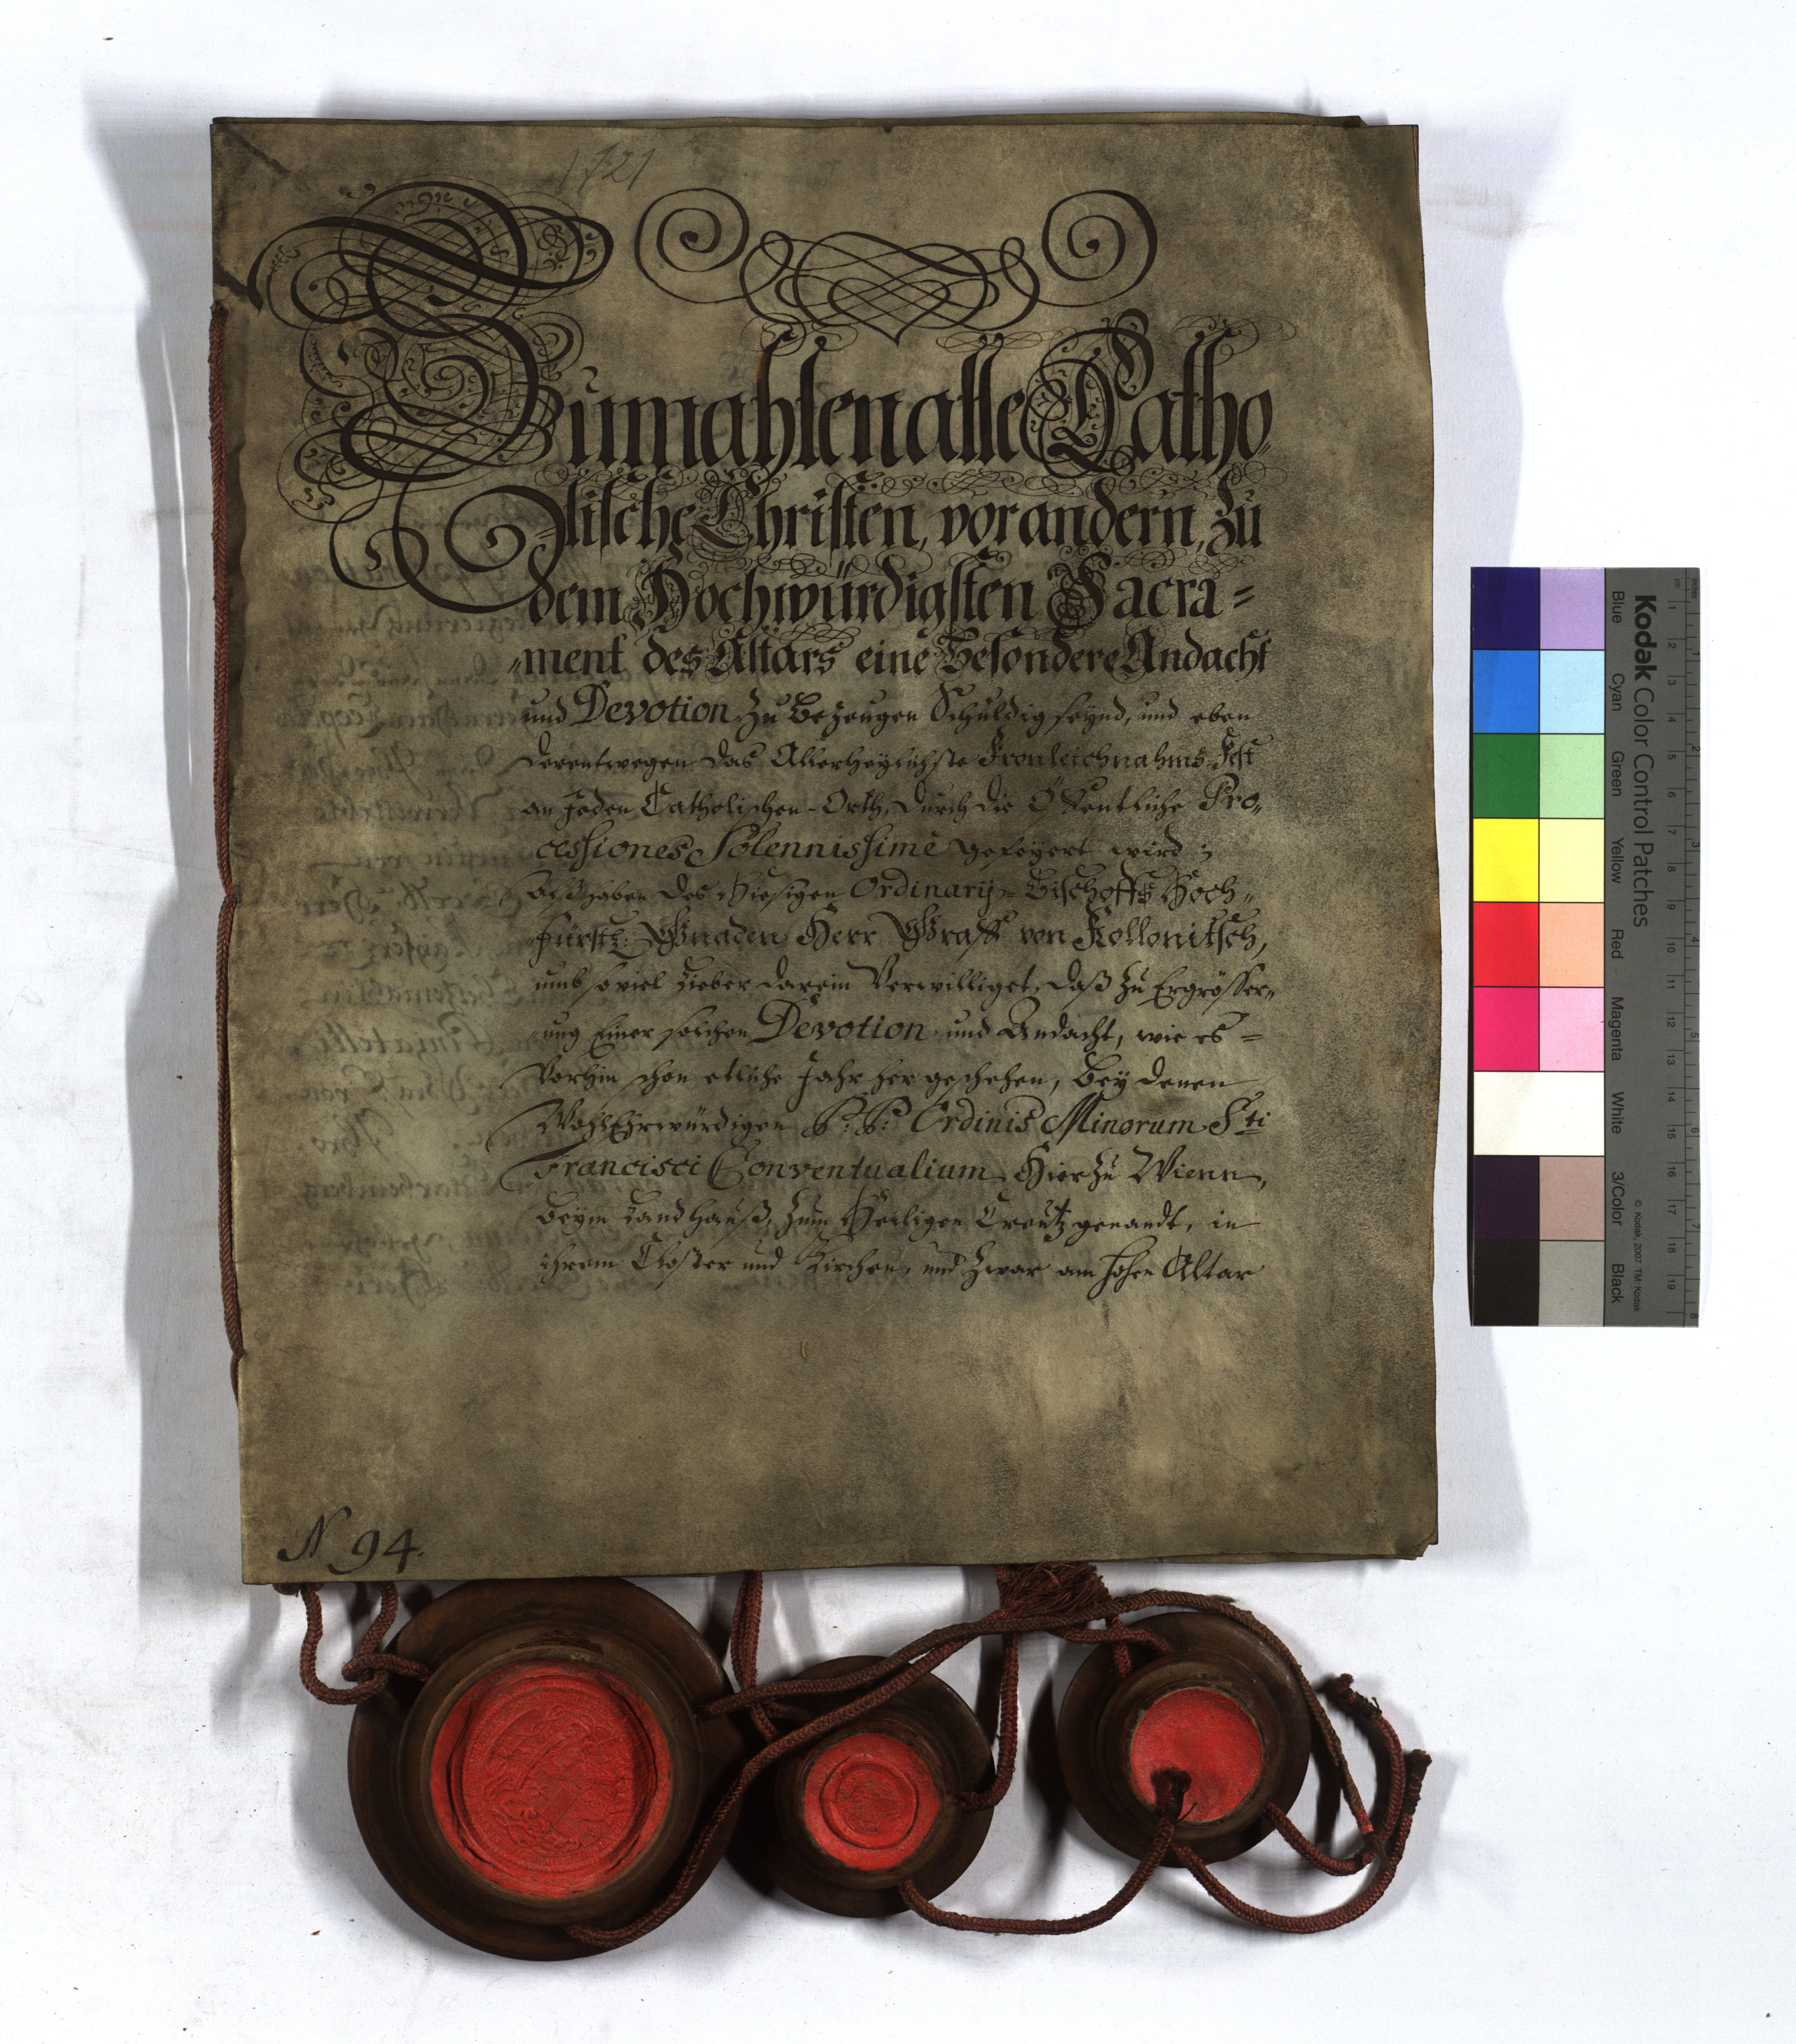 1721
Zumahlen alle Catho„
„lische Christen, vor andern, zu
dem Hochwürdigsten Sacra=
„ment des Altars eine Besondere Andacht
und Devotion zu Bezeugen Schuldig seynd, und eben
derentwegen das Allerheylichste Fronleichnahms-Fest
an Jeden Catholischen-Orth, durch die Öffentliche Pro„
cessiones Solennissimè gefeyert wird;
Alß haben des Hiesigen Ordinarij-Bischoffs Hoch„
„fürstl: Gnaden Herr Graff von Kollonitsch,
umb so viel Lieber darein Verwilliget, daß zu Ergrösser„
„ung Einer solchen Devotion und Andacht, wie es =
Vorhin schon etliche Jahr her geschehen, Bey denen
WohlEhrwürdigen P: P: Ordinis Minorum Sti
Francisci Conventualium, Hier zu Wienn,
Beym Landhauß, zum Heiligen Creutz genandt, in
ihrem Closter und Kirchen, und zwar am hohen Altar
N 94.
Kodak Color Control Patches
Blue Cyan Green Yellow Red Magenta White 3/Color Black
© Kodak, 2007 TM: Kodak
1 2 3 4 5 6 7 8 9 10 11 12 13 14 15 16 17 18 19
1 2 3 4 5 6 7 8